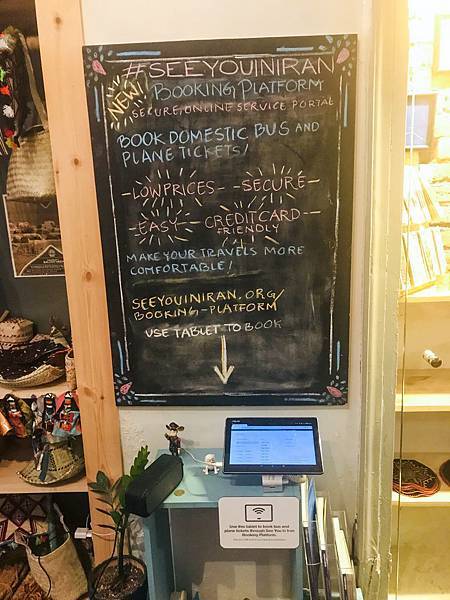 #SEEYOUINIRAN
NEW!
BOOKING PLATFORM
SECURE ONLINE SERVICE PORTAL
BOOK DOMESTIC BUS AND
PLANE TICKETS!
LOW PRICES
SECURE
EASY
CREDITCARD
FRIENDLY
MAKE YOUR TRAVELS MORE
COMFORTABLE!
SEEYOUINIRAN.ORG/
BOOKING-PLATFORM
USE TABLET TO BOOK
Use this tablet to book bus and
plane tickets through See You in Iran
Booking Platform.